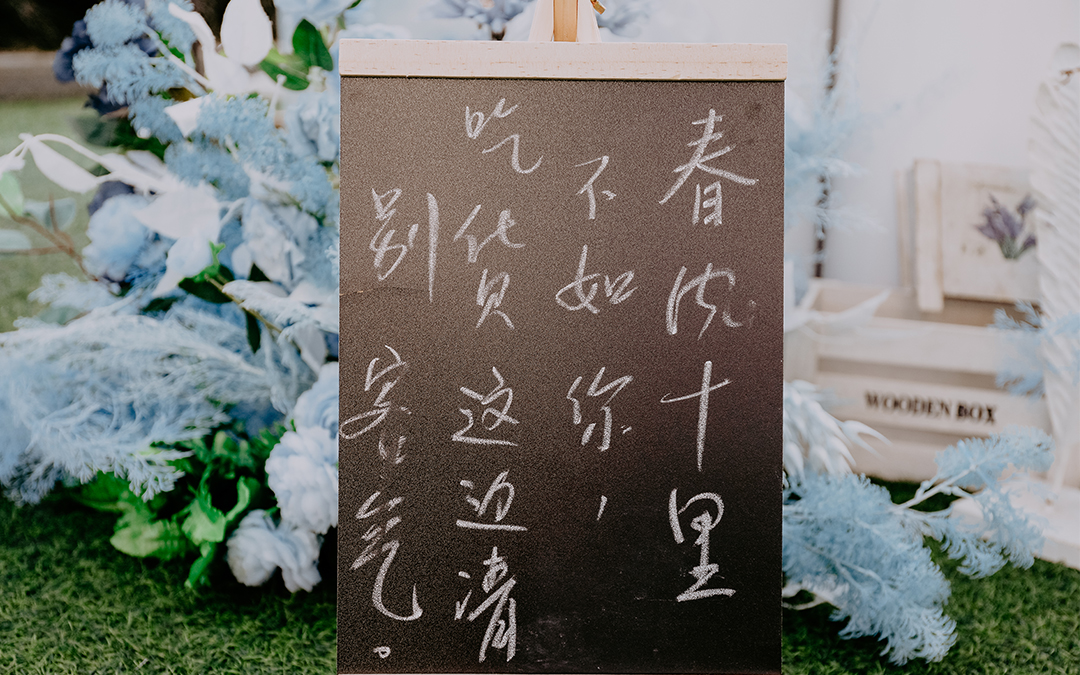 春风十里
不如你，
吃货这边请
别客气。
WOODEN BOX